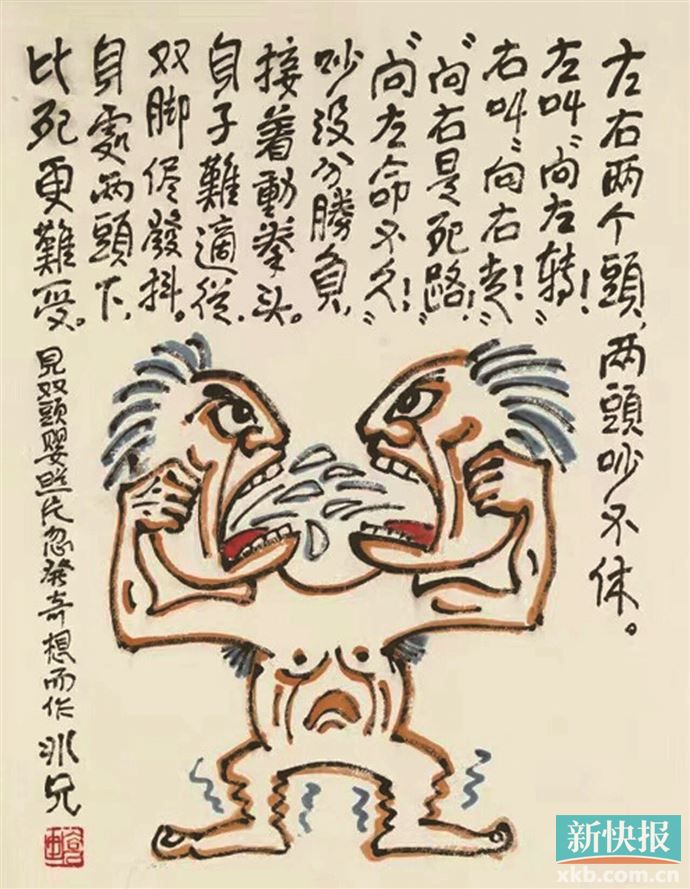 左右两个頭,两頭吵不休。
左叫“向左轉!”
右叫“向右走!”
“向右是死路!”
“向左命不久!”
吵没分勝負,
接着動拳头。
身子難適從,
双脚侭發抖。
身處两頭下,
比死更難受。
見双頭嬰照片忽發奇想而作 冰兄
新快报
xkb.com.cn